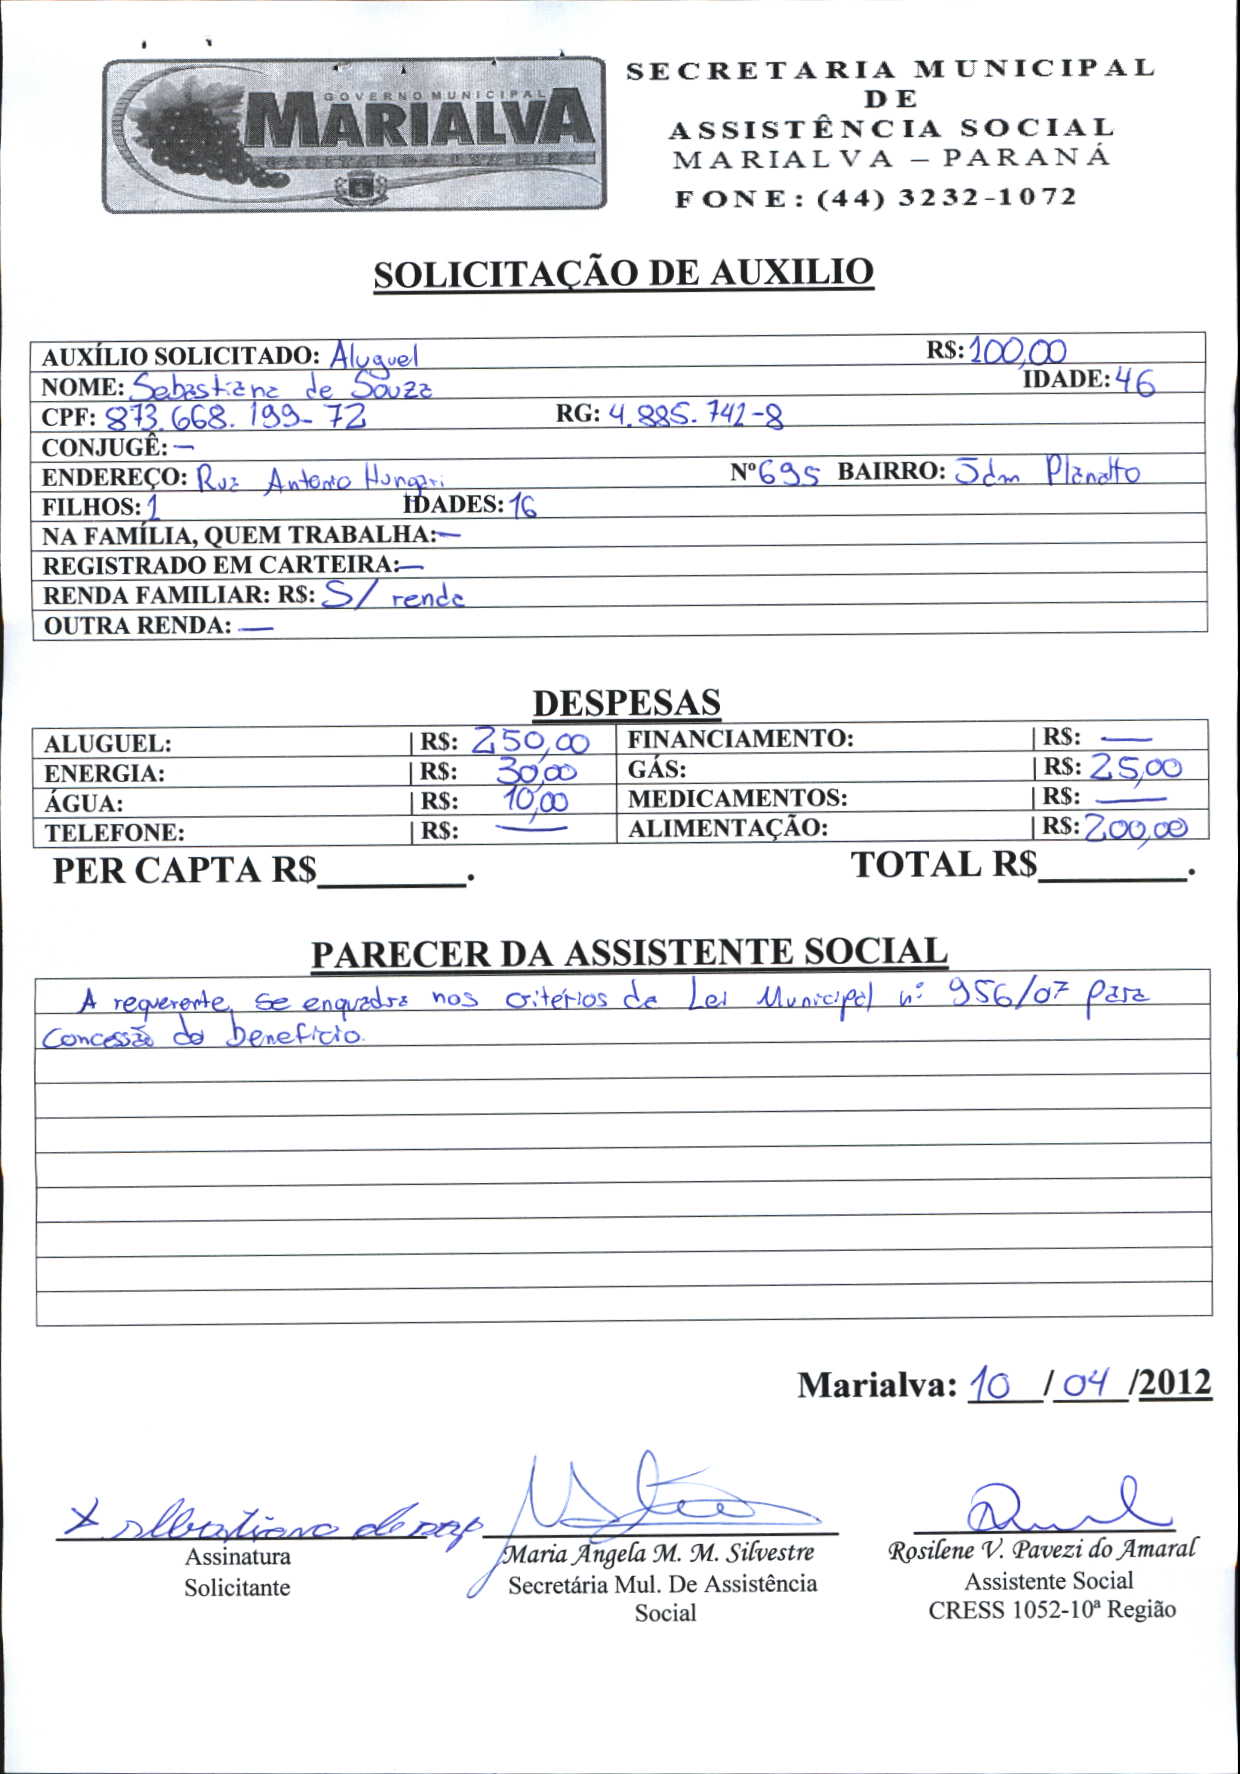 GOVERNO MUNICIPAL
MARIALVA
CAPITAL DA UVA FINA
SECRETARIA MUNICIPAL
DE
ASSISTÊNCIA SOCIAL
MARIALVA – PARANÁ
FONE: (44) 3232-1072
SOLICITAÇÃO DE AUXILIO
AUXÍLIO SOLICITADO: Aluguel R$: 100,00
NOME: Sebastiana de Souza IDADE: 46
CPF: 873.668.199-72 RG: 4.885.742-8
CONJUGÊ: —
ENDEREÇO: Rua Antonio Hungari Nº 695 BAIRRO: Jdm Planalto
FILHOS: 1 IDADES: 16
NA FAMÍLIA, QUEM TRABALHA: —
REGISTRADO EM CARTEIRA: —
RENDA FAMILIAR: R$: S/ renda
OUTRA RENDA: —
DESPESAS
ALUGUEL: | R$: 250,00 FINANCIAMENTO: | R$: —
ENERGIA: | R$: 30,00 GÁS: | R$: 25,00
ÁGUA: | R$: 10,00 MEDICAMENTOS: | R$: —
TELEFONE: | R$: — ALIMENTAÇÃO: | R$: 200,00
PER CAPTA R$________. TOTAL R$________.
PARECER DA ASSISTENTE SOCIAL
A requerente, se enquadra nos critérios da Lei Municipal nº 956/07 para
concessão do benefício.
Marialva: 10 / 04 /2012
Assinatura
Solicitante
Maria Angela M. M. Silvestre
Secretária Mul. De Assistência
Social
Rosilene V. Pavezi do Amaral
Assistente Social
CRESS 1052-10ª Região